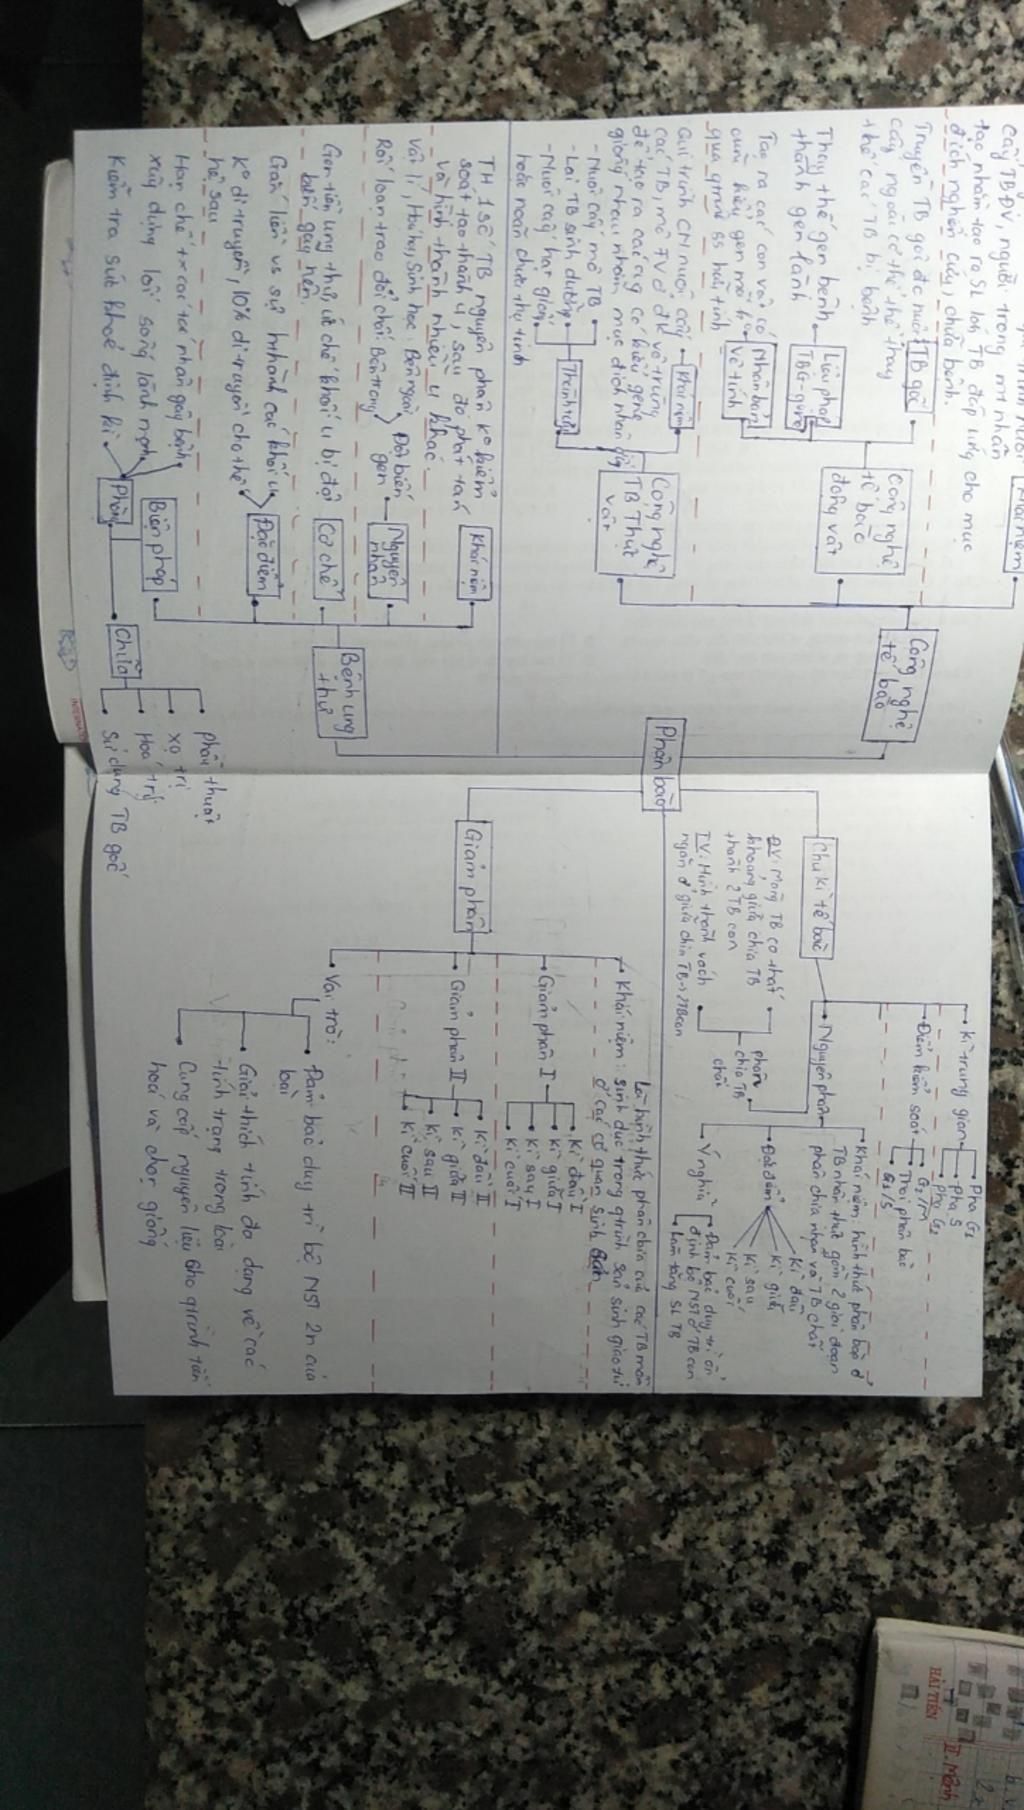 Cấy TBĐV, người trong mt nhân
tạo nhân tạo ra SL lớn TB đáp ứng cho mục
đích nghiên cứu, chữa bệnh.
Khái niệm
Truyền TB gốc đc nuôi
cấy ngoài cơ thể thay
thế các TB bị bệnh
TB gốc
Thay thế gen bệnh
thành gen lành
Liệu pháp
Tạo ra các con vật có
cùng kiểu gen mà k°
qua qtrình ss hữu tính
Nhân bản
vô tính
Công nghệ
tế bào
động vật
Công nghệ
tế bào
Qui trình CN nuôi cấy
các TB, mô TV ở đk vô trùng
để tạo ra các cây có kiểu gene
giống nhau nhằm mục đích nhân giống
Khái niệm
- Nuôi cấy mô TB
- Lai TB sinh dưỡng
- Nuôi cấy hạt phấn
hoặc noãn chưa thụ tinh
Thành tựu
Công nghệ
TB Thực
vật
TH 1 số TB nguyên phân k° kiểm
soát tạo thành u, sau đó phát tán
và hình thành nhiều u khác
Khái niệm
Vật lí, Hoá học, Sinh học: Bên ngoài
Rối loạn trao đổi chất: Bên trong
Đột biến
gen
Nguyên
nhân
Gen tiền ung thư, ức chế khối u bị đột
biến gây nên
Cơ chế
Gắn liền vs sự hthành các khối u
K° di truyền, 10% di truyền cho thế
hệ sau
Đặc điểm
Hạn chế t.x các tác nhân gây bệnh
xây dựng lối sống lành mạnh
Kiểm tra sức khoẻ định kì
Phòng
Biện pháp
Chữa
Phẫu thuật
Xạ trị
Hoá trị
Sử dụng TB gốc
Bệnh ung
thư
Phân bào
Chu kì tế bào
Kì trung gian
Pha G1
Pha S
Pha G2
Điểm kiểm soát
G2/M
Thoi phân bào
G1/S
Nguyên phân
Khái niệm: hình thức phân bào ở
TB nhân thực gồm 2 giai đoạn
phân chia nhân và TB chất
Đặc điểm
Kì đầu
Kì giữa
Kì sau
Kì cuối
Ý nghĩa
Đảm bảo duy trì ổn
định bộ NST ở TB con
Làm tăng SL TB
phân
chia TB
chất
ĐV: Màng TB co thắt
khoang giữa chia TB
thành 2 TB con
TV: Hình thành vách
ngăn ở giữa chia TB → 2TB con
Giảm phân
Khái niệm: Là hình thức phân chia của các TB mầm
sinh dục trong qtrình sản sinh giao tử
ở các cơ quan sinh sản
Giảm phân I
Kì đầu I
Kì giữa I
Kì sau I
Kì cuối I
Giảm phân II
Kì đầu II
Kì giữa II
Kì sau II
Kì cuối II
Vai trò:
Đảm bảo duy trì bộ NST 2n của
loài
Giải thích tính đa dạng về các
tính trạng trong loài
Cung cấp nguyên liệu cho qtrình tiến
hoá và chọn giống
HẢI TIẾN